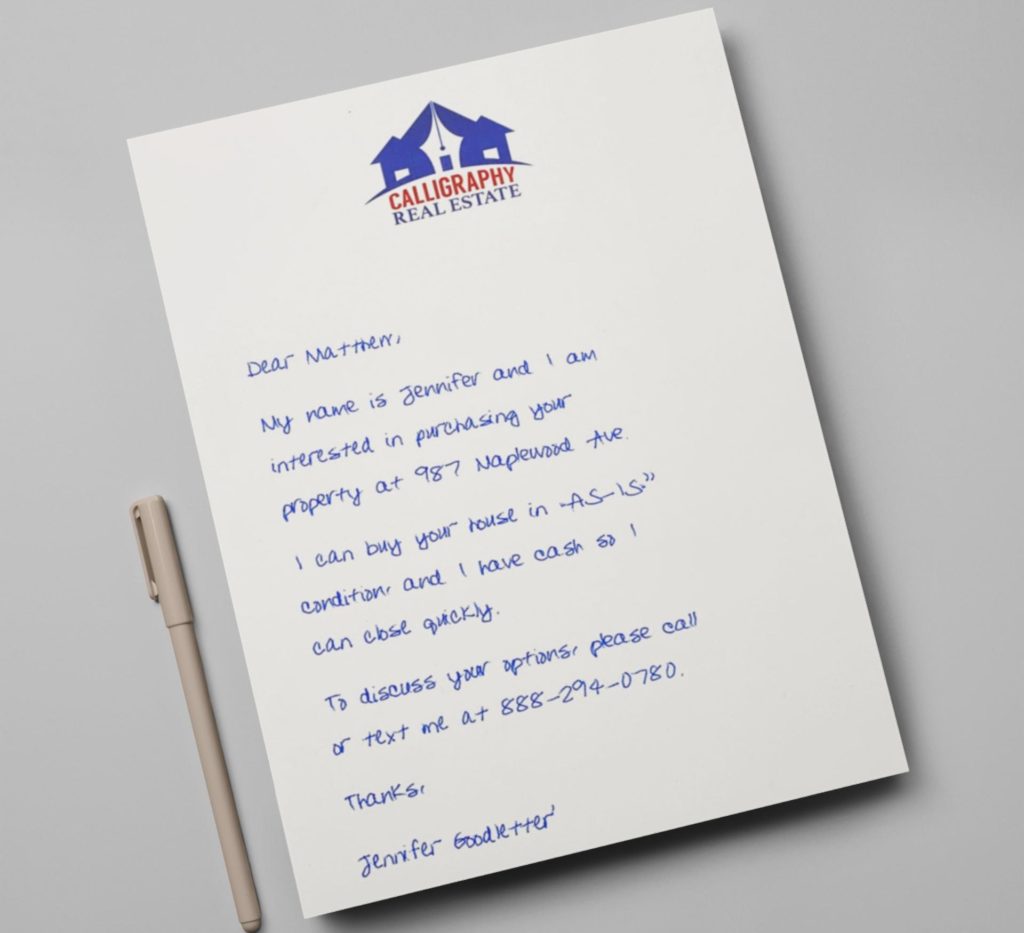 CALLIGRAPHY
REAL ESTATE
Dear Matthew,
My name is Jennifer and I am
interested in purchasing your
property at 987 Maplewood Ave.
I can buy your house in "AS-IS"
condition, and I have cash so I
can close quickly.
To discuss your options, please call
or text me at 888-294-0780.
Thanks,
Jennifer Goodletter